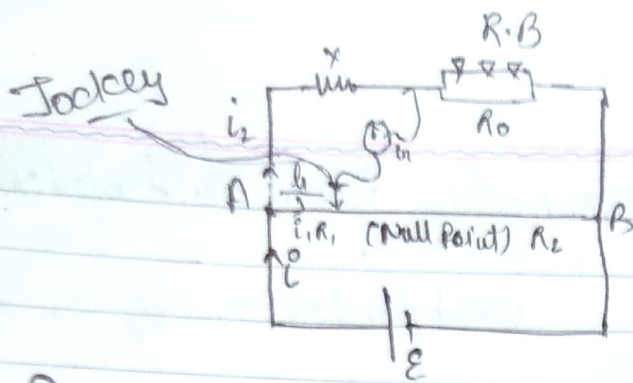 R.B
x
Jockey
R0
i2
l1
A
i1R1 (Null Point) R2
B
i
ε